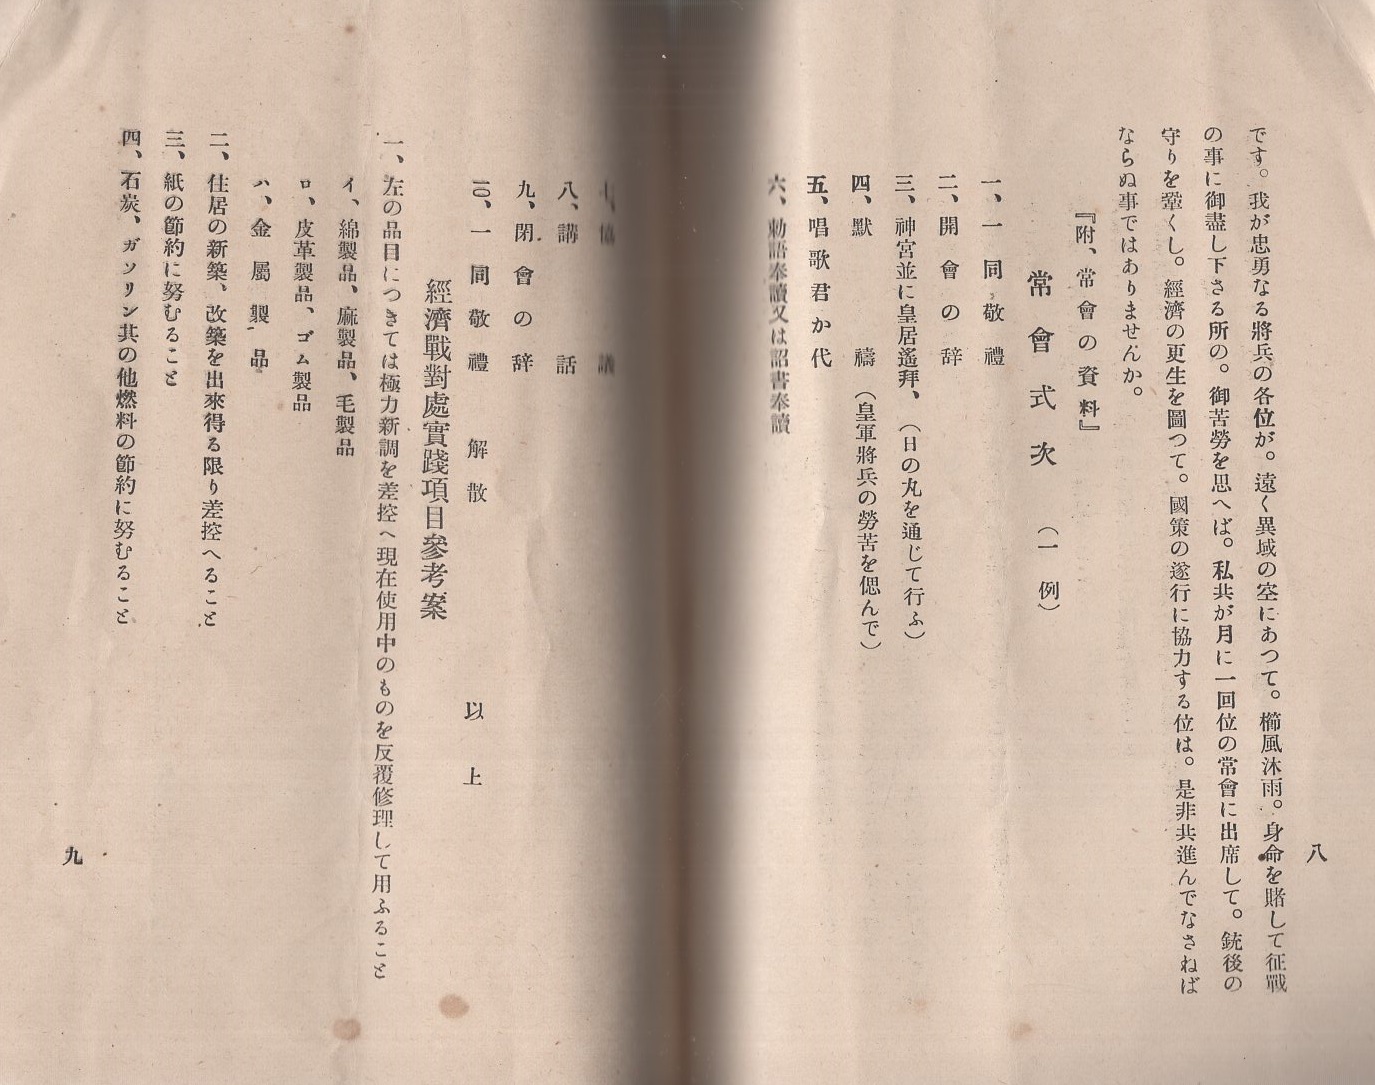 八
です。我が忠勇なる將兵の各位が。遠く異域の空にあつて。櫛風沐雨。身命を賭して征戰
の事に御盡し下さる所の。御苦勞を思へば。私共が月に一回位の常會に出席して。銃後の
守りを鞏くし。經濟の更生を圖つて。國策の遂行に協力する位は。是非共進んでなさねば
ならぬ事ではありませんか。
『附、常會の資料』
常會式次（一例）
一、一同敬禮
二、開會の辞
三、神宮並に皇居遙拜、（日の丸を通じて行ふ）
四、默禱（皇軍將兵の勞苦を偲んで）
五、唱歌君か代
六、勅語奉讀又は詔書奉讀
七、協議
八、講話
九、閉會の辞
一〇、一同敬禮 解散
以上
經濟戰對處實踐項目參考案
一、左の品目につきては極力新調を差控へ現在使用中のものを反覆修理して用ふること
イ、綿製品、麻製品、毛製品
ロ、皮革製品、ゴム製品
ハ、金屬製品
二、住居の新築、改築を出來得る限り差控へること
三、紙の節約に努むること
四、石炭、ガソリン其の他燃料の節約に努むること
九